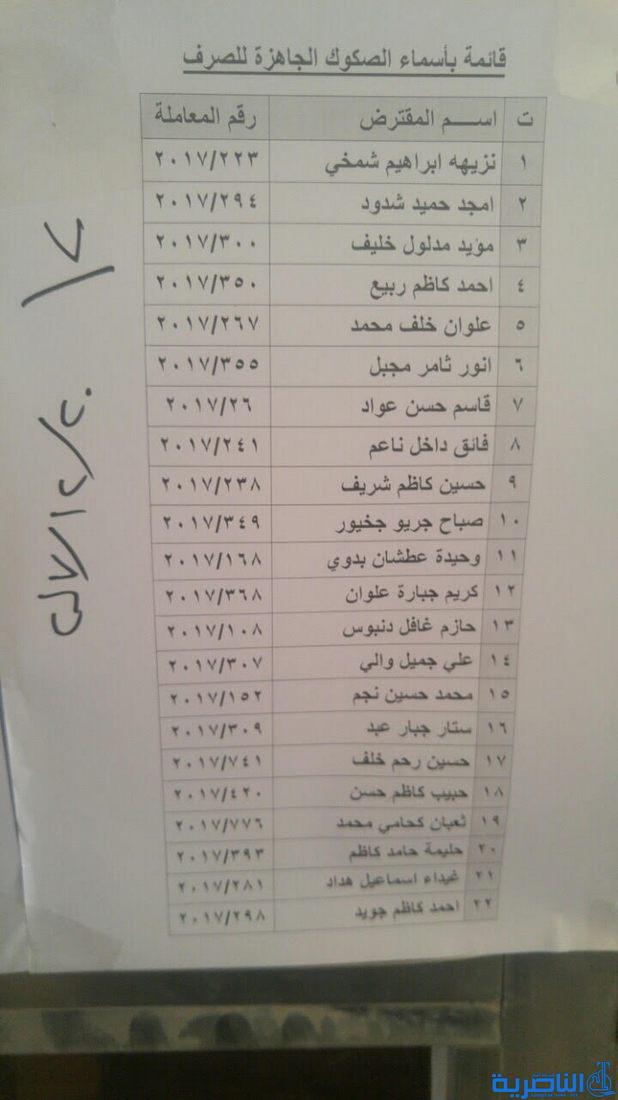 قائمة بأسماء الصكوك الجاهزة للصرف
ت اســـم المقترض رقم المعاملة
١ نزيهه ابراهيم شمخي ٢٠١٧/٢٢٣
٢ امجد حميد شدود ٢٠١٧/٢٩٤
٣ مؤيد مدلول خليف ٢٠١٧/٣٠٠
٤ احمد كاظم ربيع ٢٠١٧/٣٥٠
٥ علوان خلف محمد ٢٠١٧/٢٦٧
٦ انور ثامر مجبل ٢٠١٧/٣٥٥
٧ قاسم حسن عواد ٢٠١٧/٢٦
٨ فائق داخل ناعم ٢٠١٧/٢٤١
٩ حسين كاظم شريف ٢٠١٧/٢٣٨
١٠ صباح جريو جخيور ٢٠١٧/٣٤٩
١١ وحيدة عطشان بدوي ٢٠١٧/١٦٨
١٢ كريم جبارة علوان ٢٠١٧/٣٦٨
١٣ حازم غافل دنبوس ٢٠١٧/١٠٨
١٤ علي جميل والي ٢٠١٧/٣٠٧
١٥ محمد حسين نجم ٢٠١٧/١٥٢
١٦ ستار جبار عبد ٢٠١٧/٣٠٩
١٧ حسين رحم خلف ٢٠١٧/٧٤١
١٨ حبيب كاظم حسن ٢٠١٧/٤٢٠
١٩ ثعبان كحامي محمد ٢٠١٧/٧٧٦
٢٠ حليمة حامد كاظم ٢٠١٧/٣٩٣
٢١ غيداء اسماعيل هداد ٢٠١٧/٢٨١
٢٢ احمد كاظم جويد ٢٠١٧/٢٩٨
الناصرية